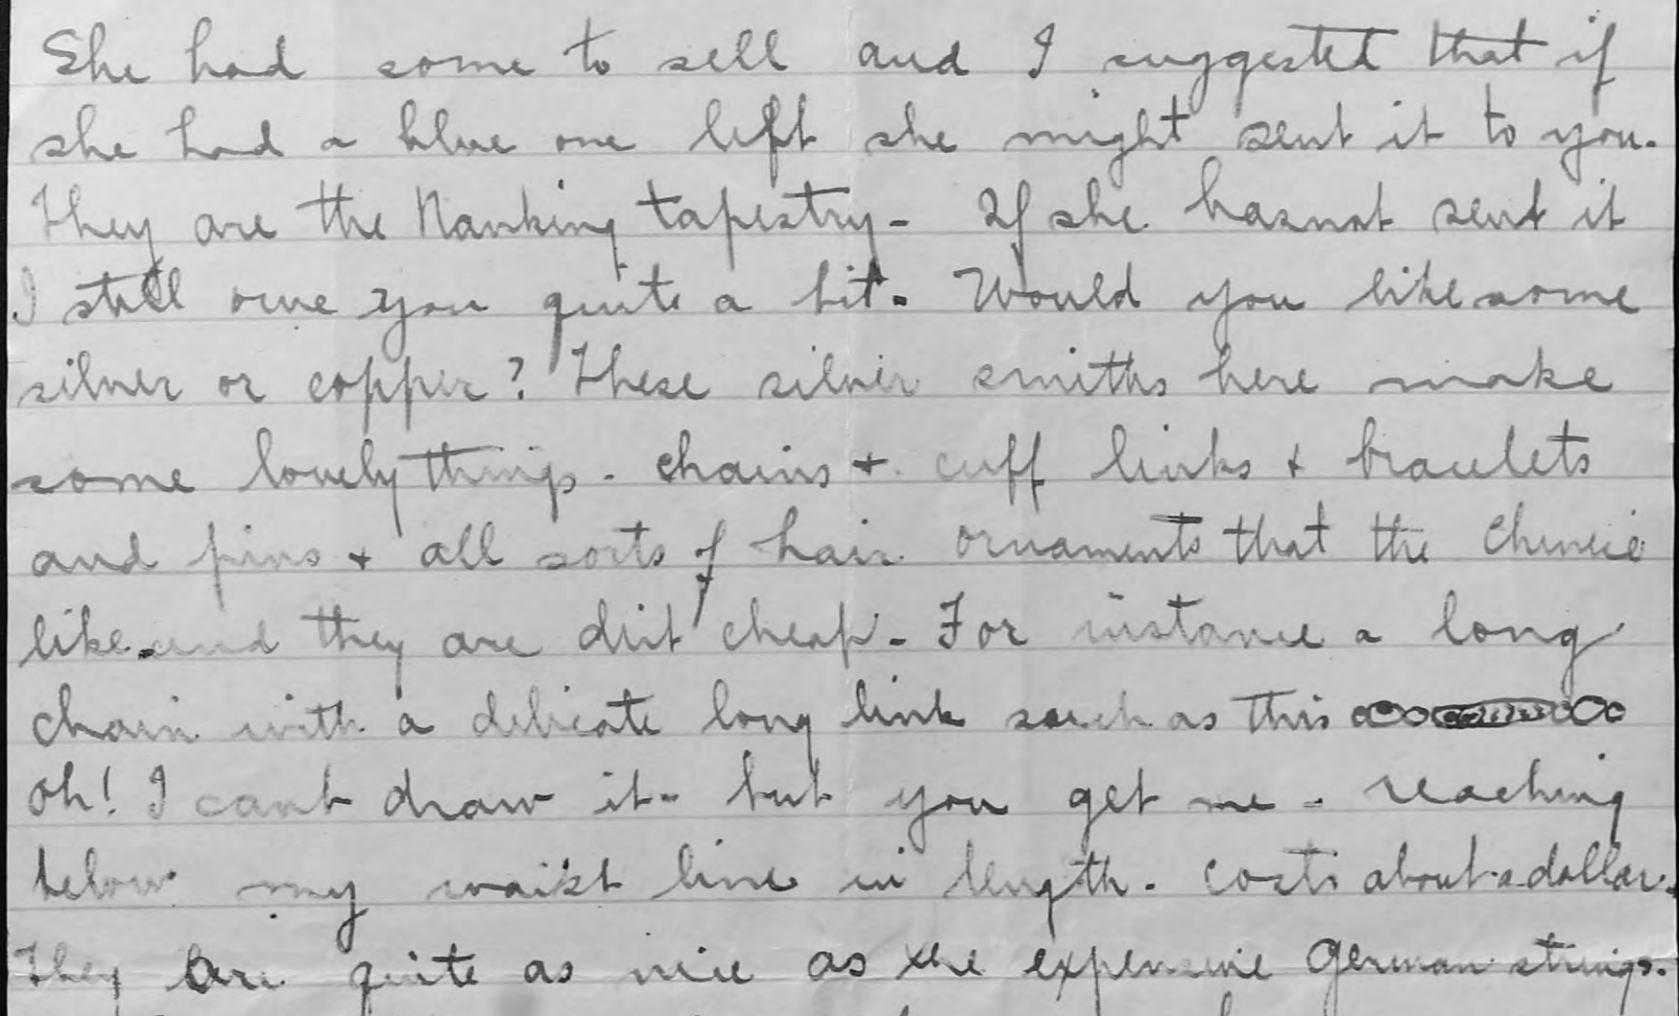 She had some to sell and I suggested that if
she had a blue one left she might sent it to you.
They are the Nanking tapestry - If she hasnot sent it
I still owe you quite a bit. Would you like some
silver or copper? These silver smiths here make
some lovely things - chains + cuff links + bracelets
and pins + all sorts of hair ornaments that the Chinese
like and they are dirt cheap - For instance a long
chain with a delicate long link such as this
Oh! I cant draw it - but you get me - reaching
below my waist line in length - costs about a dollar.
They are quite as nice as the expensive German strings.